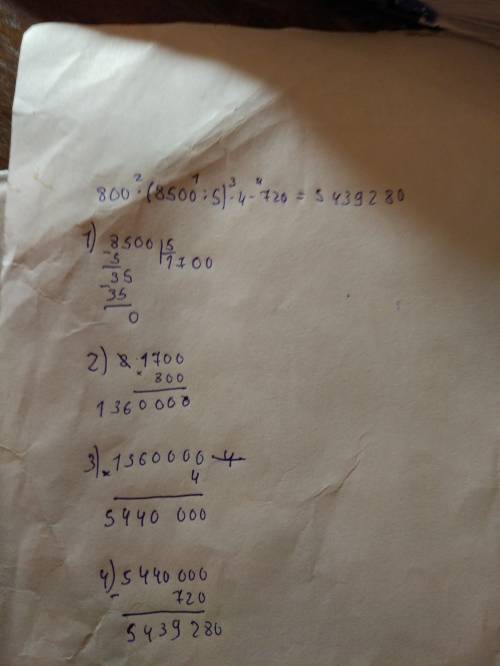 800 · (8500 : 5) · 4 - 720 = 5439280
2 1 3 4
1) 8500 5
- 5 1700
35
- 35
0
2) 8 · 1700
× 800
1360000
3) × 1360000 4
4
5440 000
4) 5440000
- 720
5439280